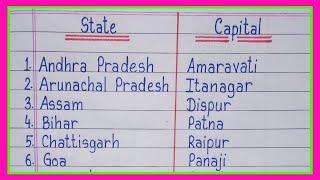 State Capital
1. Andhra Pradesh Amaravati
2. Arunachal Pradesh Itanagar
3. Assam Dispur
4. Bihar Patna
5. Chattisgarh Raipur
6. Goa Panaji